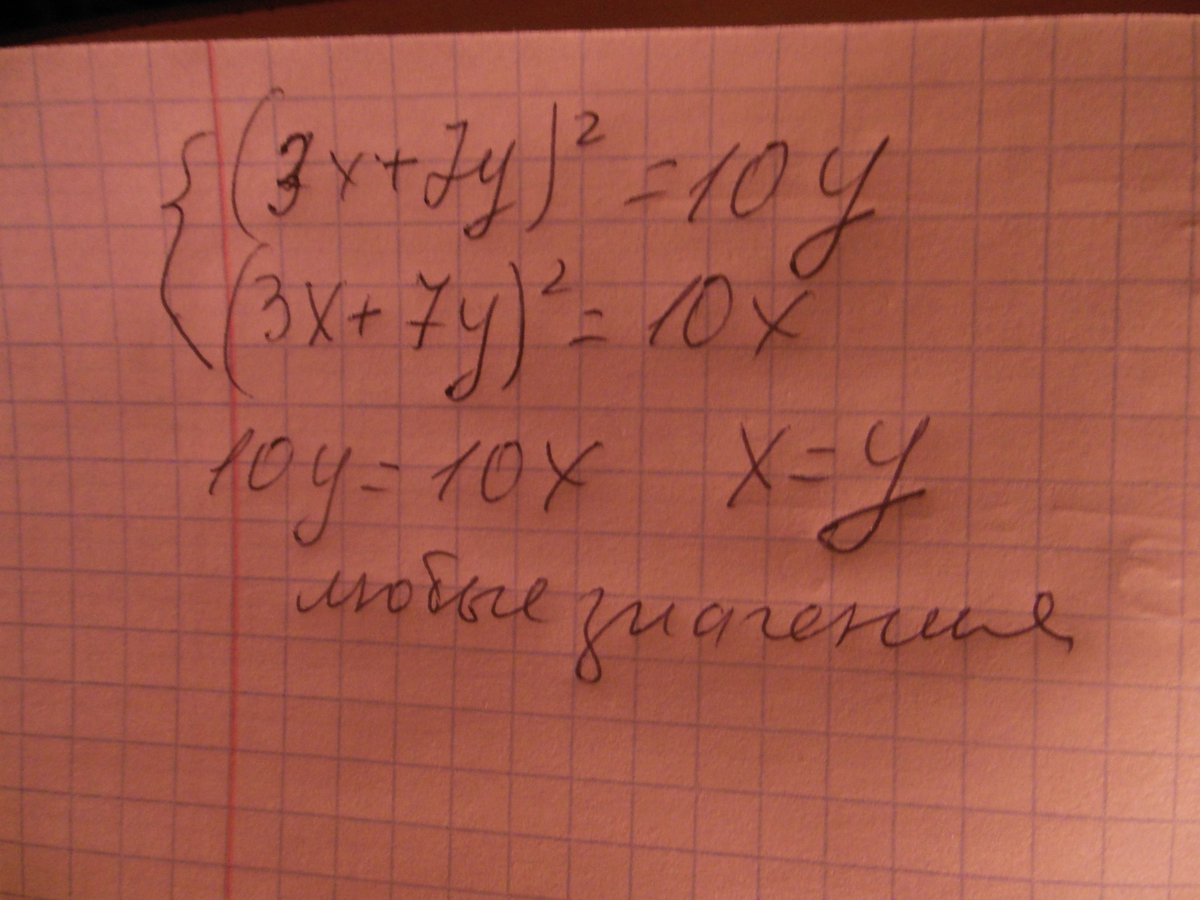 (3x+7y)² = 10y
(3x+7y)² = 10x
10y = 10x x = y
любые значения